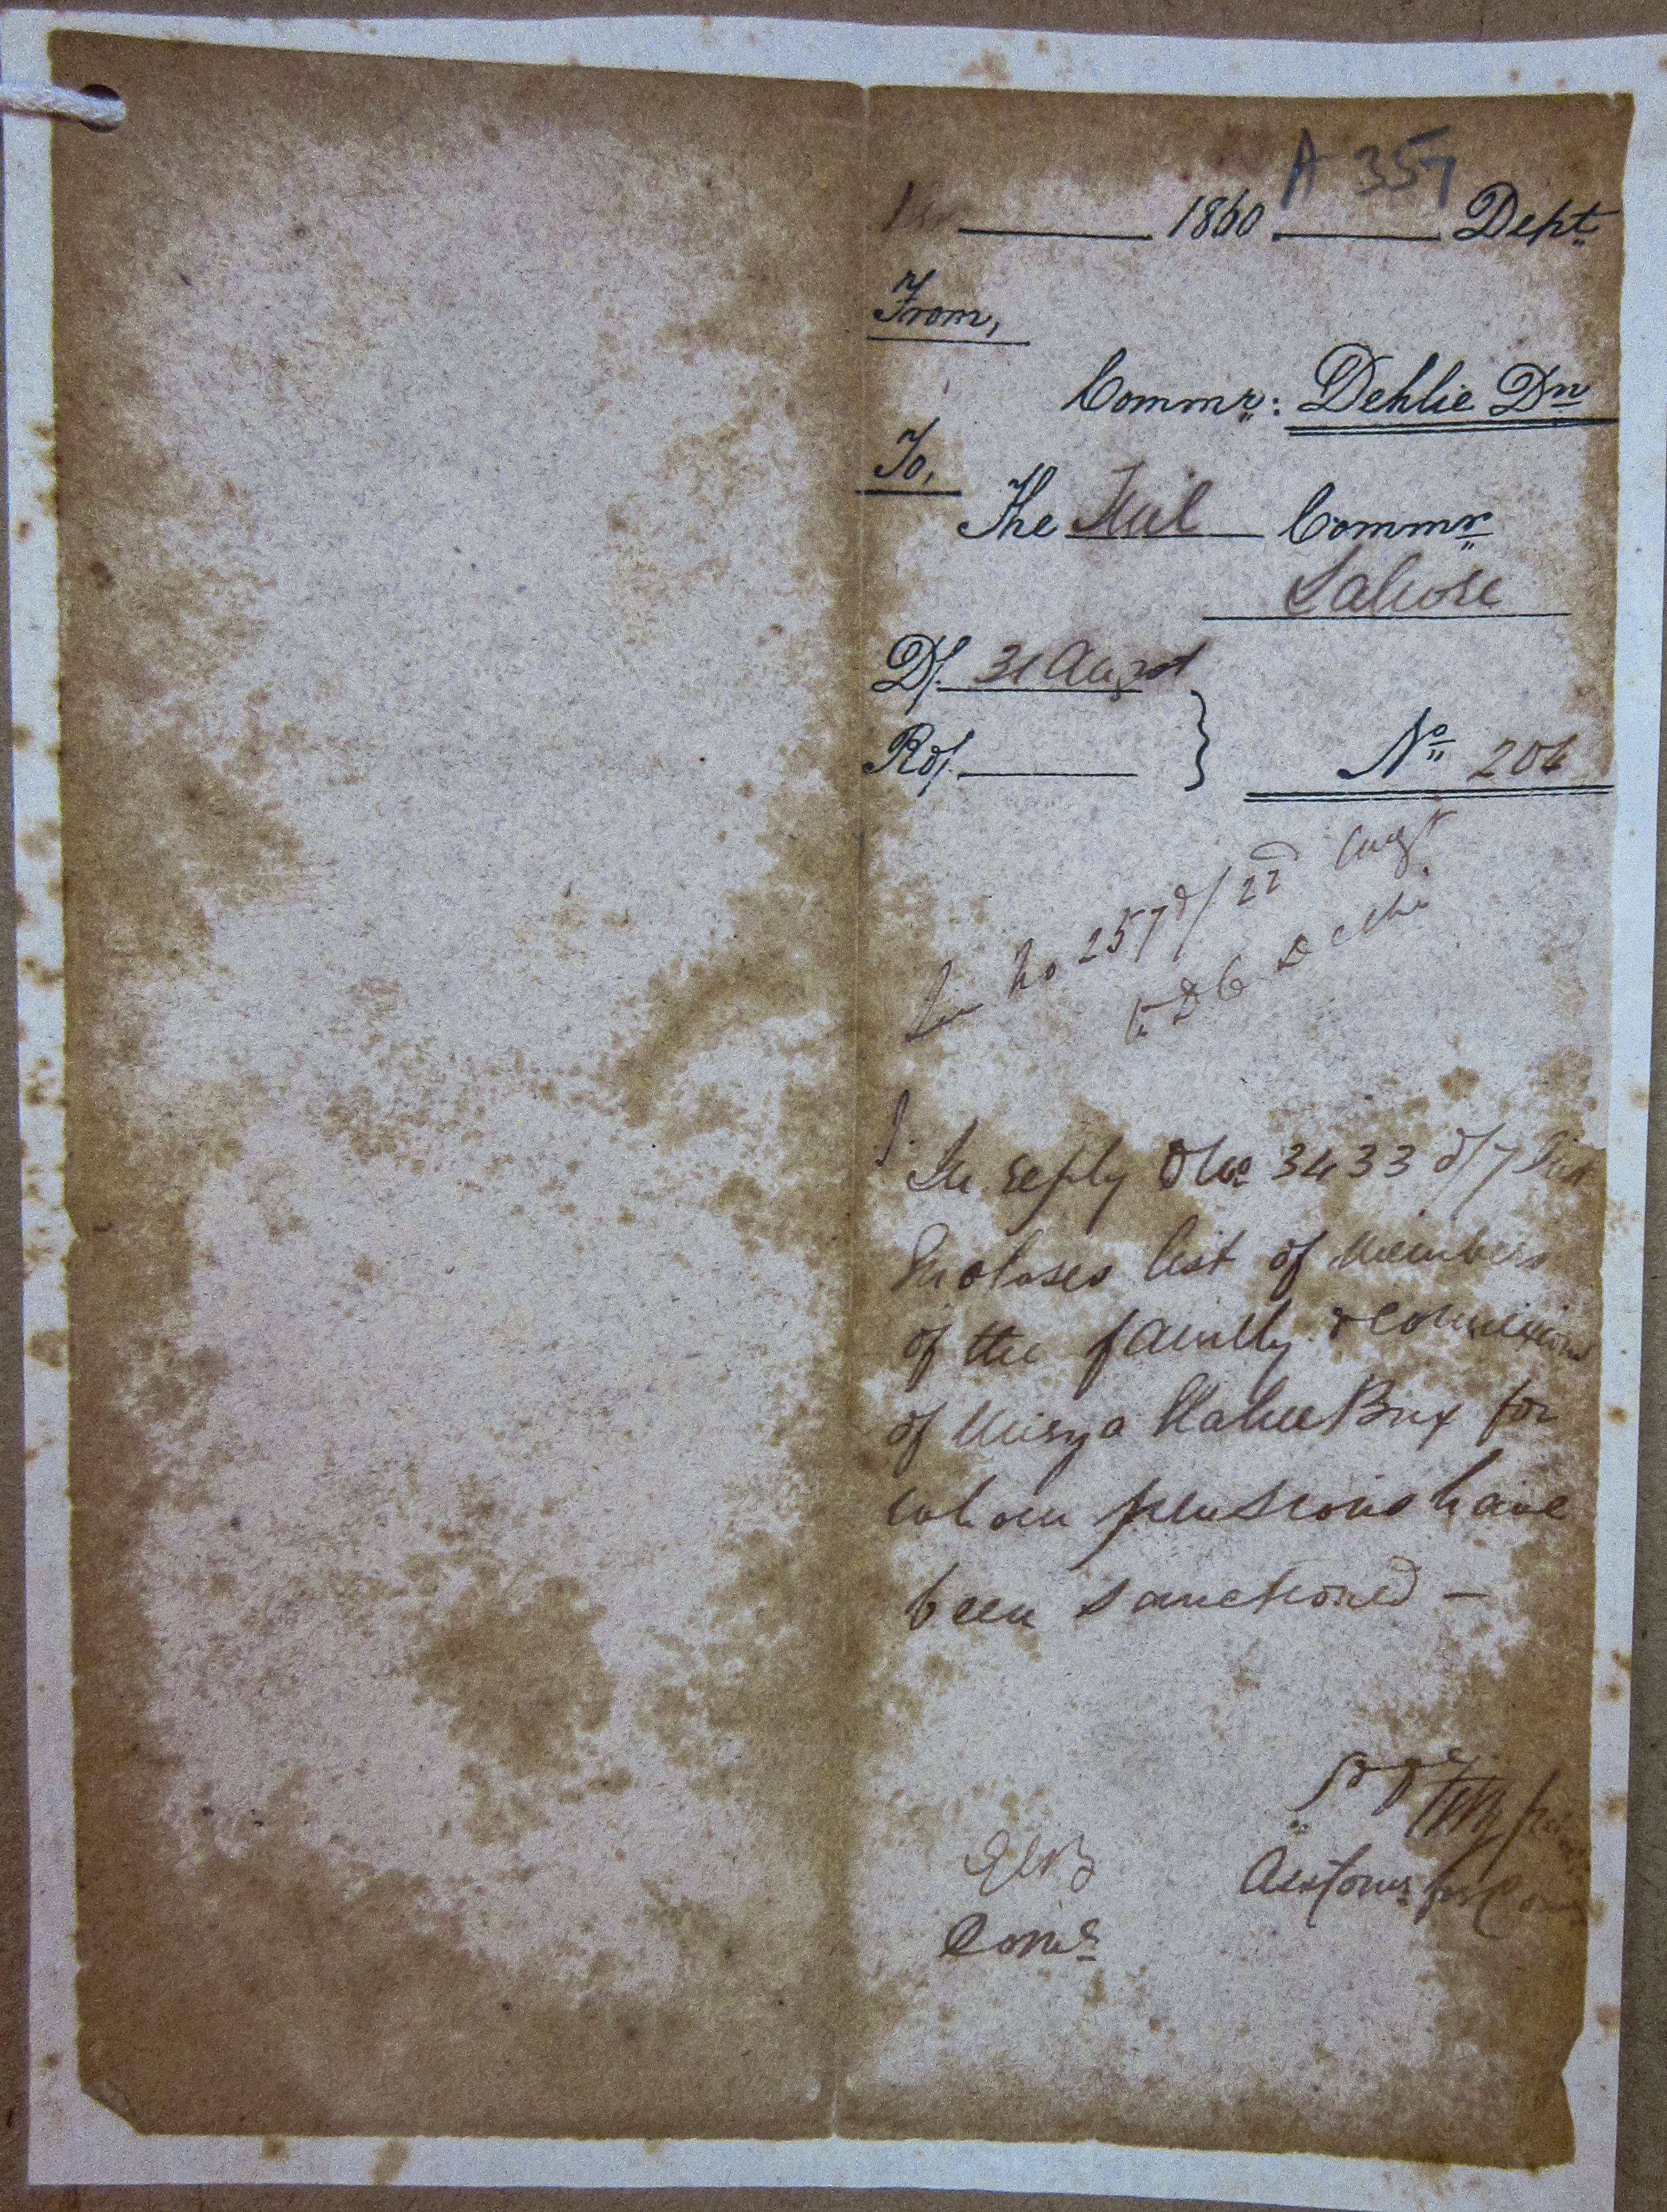 A 357
1860 Dept
From,
Commr: Dehlie Dn
To,
The Commr
Lahore
D/. 31 August
Rd/.
No 206
No 257 d/ 22d Augt
In reply to No 3433 d/ 7
Encloses list of members
of the family & connexions
of Mirza Ilahee Bux for
whom pensions have
been sanctioned —
Comr